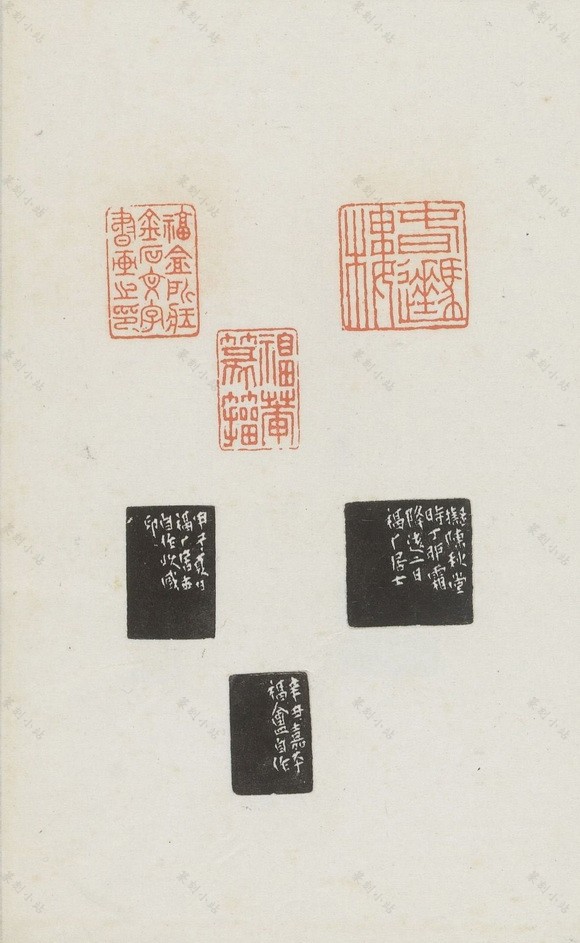 樓
福盦所藏
金石文字
書畫之印
福菴
篆籀
擬陳秋堂
時丁卯霜
降後二日
福厂居士
甲子夏日
福厂居士
自作收藏
印
辛丑嘉平
福盦自作
篆刻小站